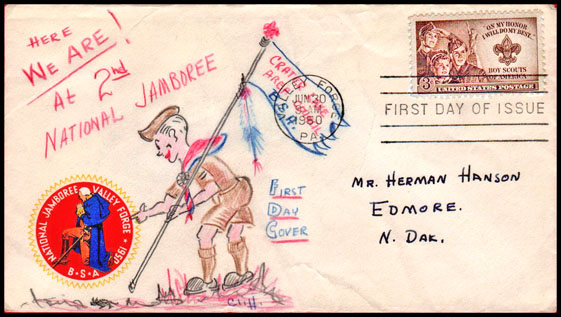 HERE
WE ARE!
AT 2nd
NATIONAL JAMBOREE
CRATER LAKE
AREA COUNCIL
B.S.A.
VALLEY FORGE
JUN 30
AM
1950
PA.
"ON MY HONOR
I WILL DO MY BEST..."
BOY SCOUTS
OF AMERICA
3¢
UNITED STATES POSTAGE
FIRST DAY OF ISSUE
MR. HERMAN HANSON
EDMORE.
N. DAK.
FIRST
DAY
COVER
NATIONAL JAMBOREE VALLEY FORGE • 1950
B•S•A